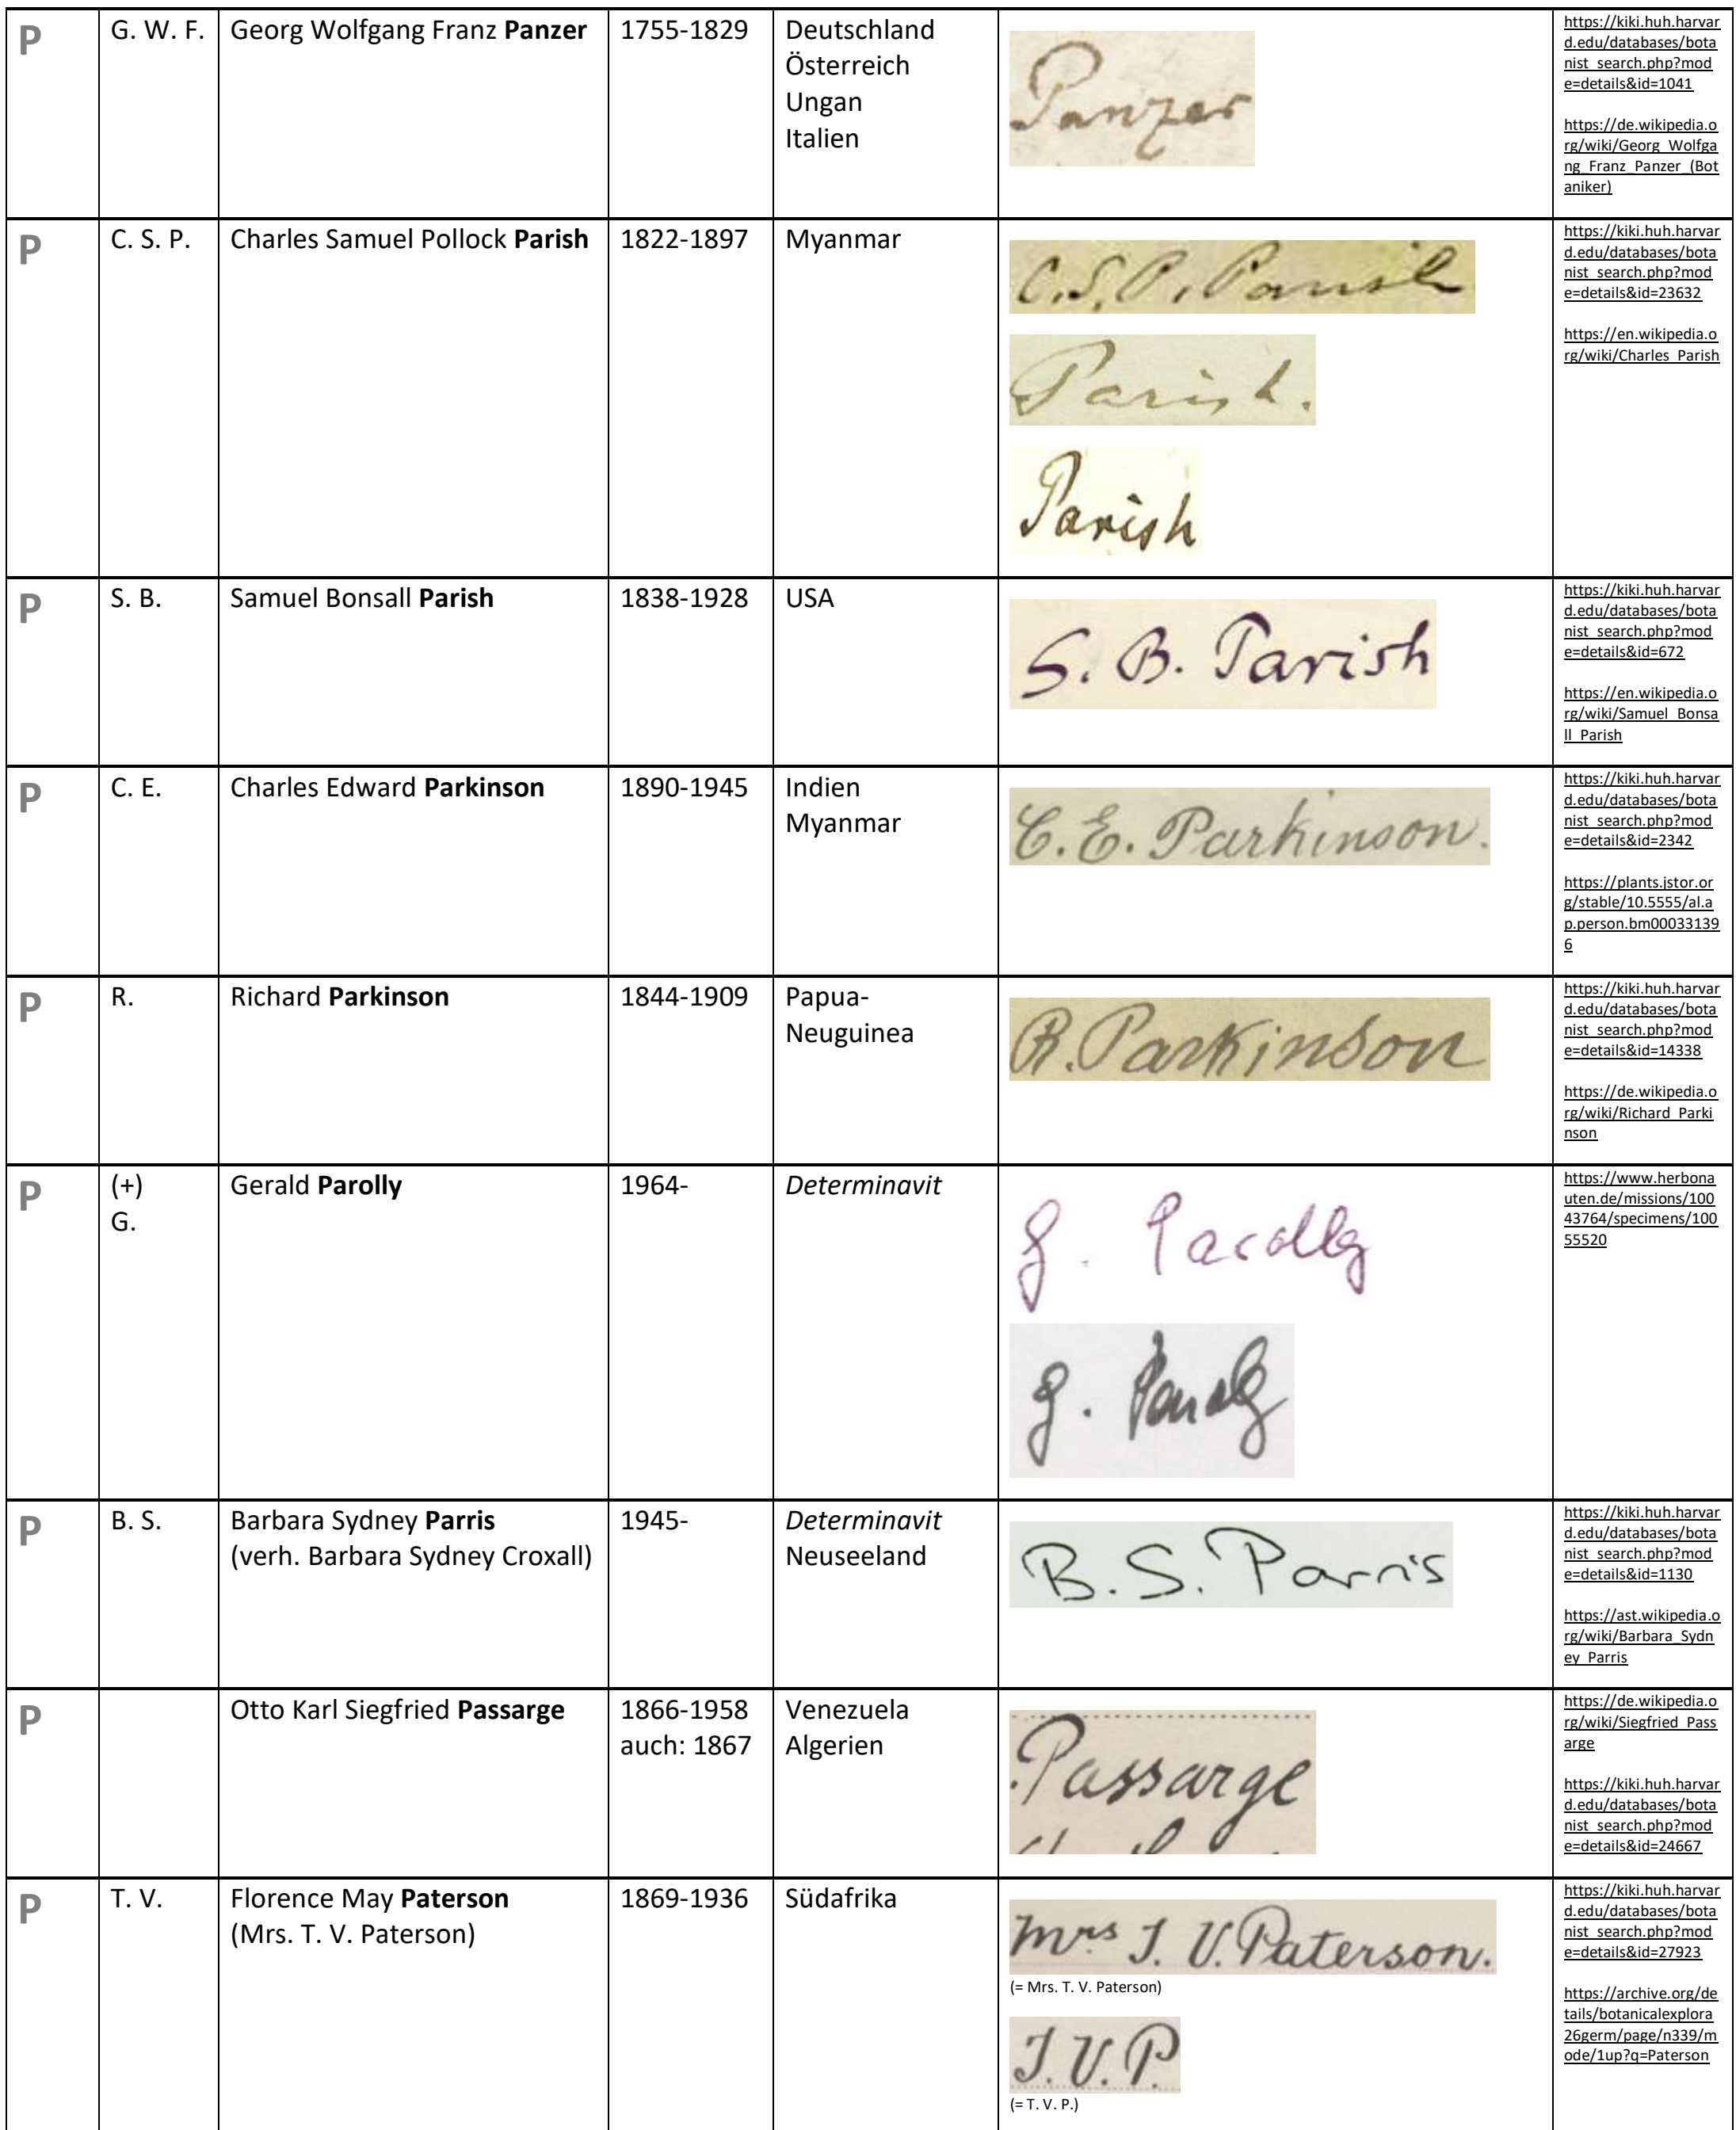 P
G. W. F.
Georg Wolfgang Franz Panzer
1755-1829
Deutschland
Österreich
Ungan
Italien
Panzer
https://kiki.huh.harvar
d.edu/databases/bota
nist_search.php?mod
e=details&id=1041
https://de.wikipedia.o
rg/wiki/Georg_Wolfga
ng_Franz_Panzer_(Bot
aniker)
P
C. S. P.
Charles Samuel Pollock Parish
1822-1897
Myanmar
C.S.P. Parish
Parish.
Parish
https://kiki.huh.harvar
d.edu/databases/bota
nist_search.php?mod
e=details&id=23632
https://en.wikipedia.o
rg/wiki/Charles_Parish
P
S. B.
Samuel Bonsall Parish
1838-1928
USA
S. B. Parish
https://kiki.huh.harvar
d.edu/databases/bota
nist_search.php?mod
e=details&id=672
https://en.wikipedia.o
rg/wiki/Samuel_Bonsa
ll_Parish
P
C. E.
Charles Edward Parkinson
1890-1945
Indien
Myanmar
C. E. Parkinson.
https://kiki.huh.harvar
d.edu/databases/bota
nist_search.php?mod
e=details&id=2342
https://plants.jstor.or
g/stable/10.5555/al.a
p.person.bm00033139
6
P
R.
Richard Parkinson
1844-1909
Papua-
Neuguinea
R. Parkinson
https://kiki.huh.harvar
d.edu/databases/bota
nist_search.php?mod
e=details&id=14338
https://de.wikipedia.o
rg/wiki/Richard_Parki
nson
P
(+)
G.
Gerald Parolly
1964-
Determinavit
G. Parolly
G. Parolly
https://www.herbona
uten.de/missions/100
43764/specimens/100
55520
P
B. S.
Barbara Sydney Parris
(verh. Barbara Sydney Croxall)
1945-
Determinavit
Neuseeland
B. S. Parris
https://kiki.huh.harvar
d.edu/databases/bota
nist_search.php?mod
e=details&id=1130
https://ast.wikipedia.o
rg/wiki/Barbara_Sydn
ey_Parris
P
Otto Karl Siegfried Passarge
1866-1958
auch: 1867
Venezuela
Algerien
Passarge
https://de.wikipedia.o
rg/wiki/Siegfried_Pass
arge
https://kiki.huh.harvar
d.edu/databases/bota
nist_search.php?mod
e=details&id=24667
P
T. V.
Florence May Paterson
(Mrs. T. V. Paterson)
1869-1936
Südafrika
Mrs T. V. Paterson.
(= Mrs. T. V. Paterson)
T. V. P.
(= T. V. P.)
https://kiki.huh.harvar
d.edu/databases/bota
nist_search.php?mod
e=details&id=27923
https://archive.org/de
tails/botanicalexplora
26germ/page/n339/m
ode/1up?q=Paterson